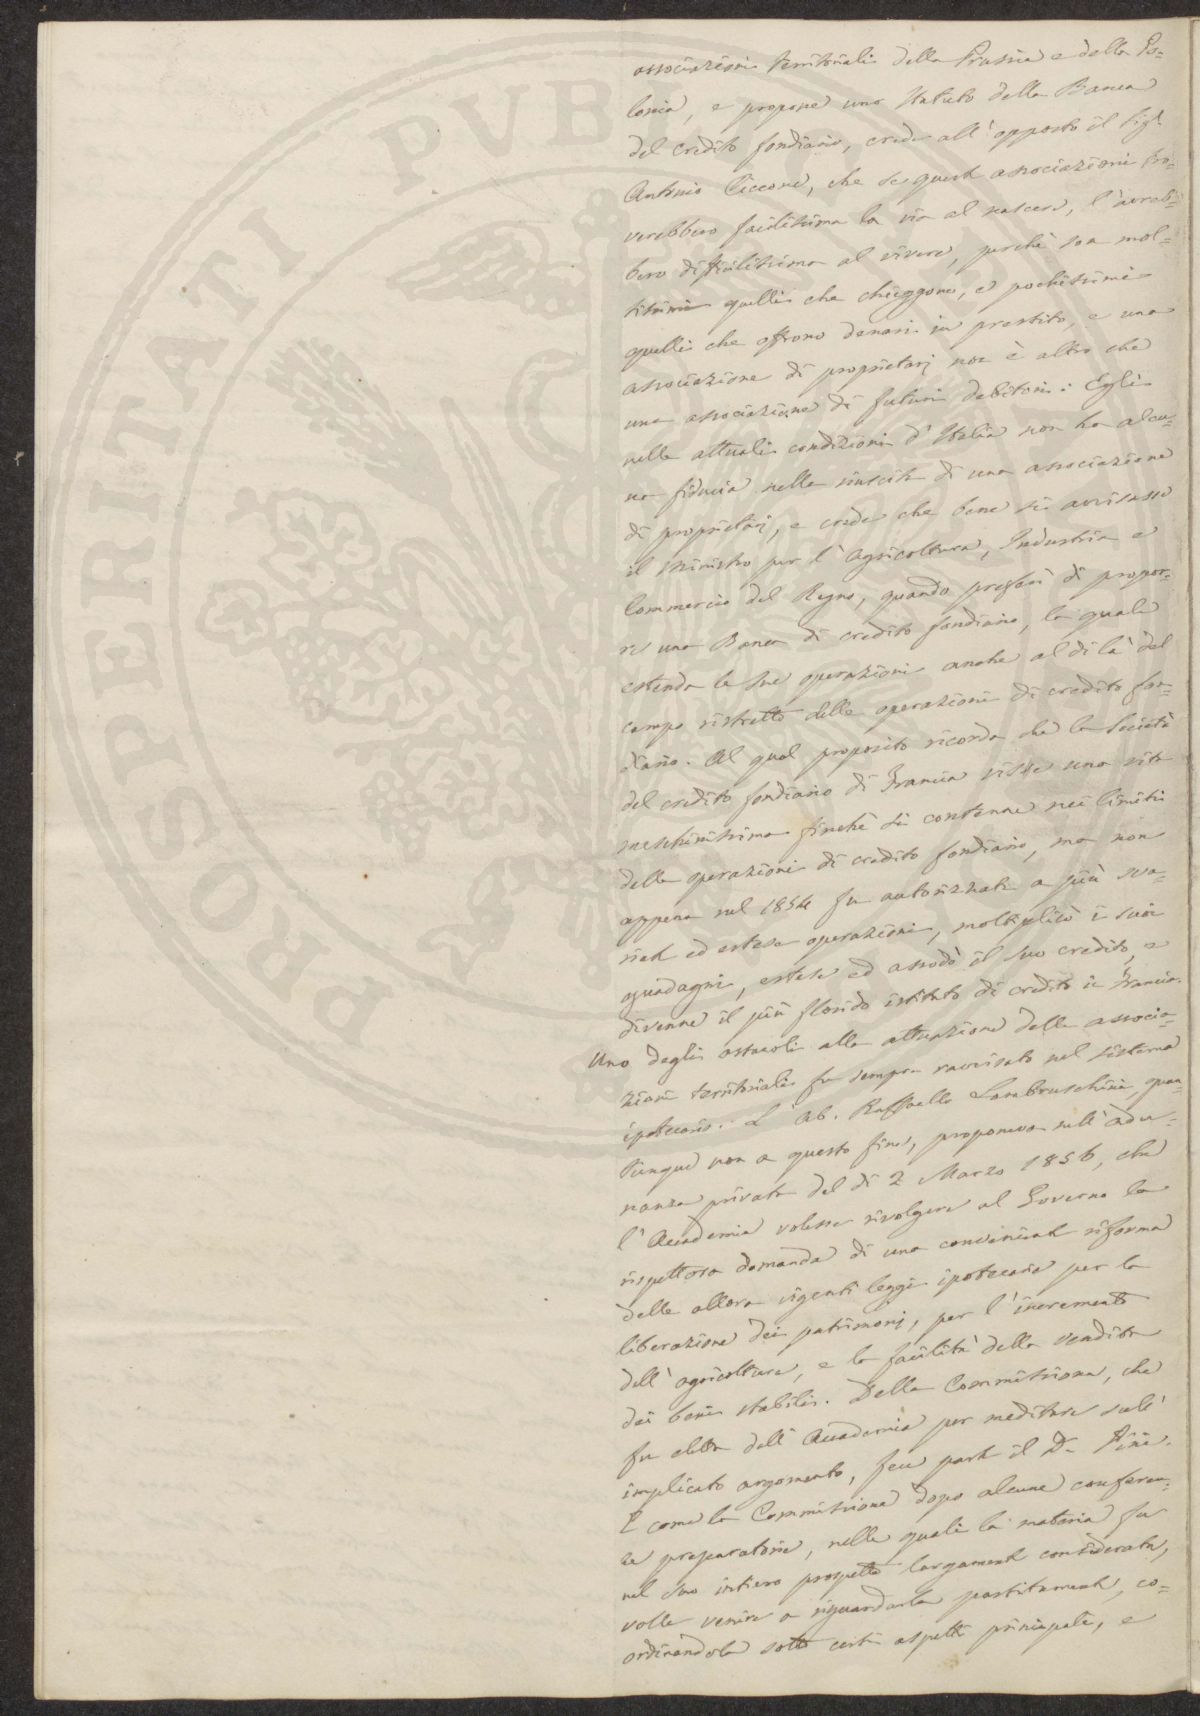 associazioni territoriali della Prussia e della Po=
lonia, e propone uno Statuto della Banca
del credito fondiario, crede all'opposto il Sigr
Antonio Ciccone, che se queste associazioni tro=
verebbero facilissima la via al nascere, l'avreb=
bero difficilissima al vivere, perchè son mol=
tissimi quelli che chieggono, e pochissimi
quelli che offrono denari in prestito, e una
associazione di proprietarj non è altro che
una associazione di futuri debitori: Egli
nelle attuali condizioni d'Italia non ha alcu=
na fiducia nella riuscita di una associazione
di proprietarj, e crede che bene si avvisasse
il Ministro per l'Agricoltura, Industria e
Commercio del Regno, quando preferì di propor=
re una Banca di credito fondiario, la quale
estenda le sue operazioni anche al di là del
campo ristretto delle operazioni di credito fon=
diario. Al qual proposito ricorda che la Società
del credito fondiario di Francia visse una vita
meschinissima finchè si contenne nei limiti
delle operazioni di credito fondiario, ma non
appena nel 1854 fu autorizzata a più sva=
riate ed estese operazioni, moltiplicò i suoi
guadagni, estese ed assodò il suo credito, e
divenne il più florido istituto di credito in Francia.
Uno degli ostacoli alla attuazione delle associa=
zioni territoriali fu sempre ravvisato nel sistema
ipotecario. L'Ab. Raffaello Lambruschini, quan=
tunque non a questo fine, proponeva nell'adu=
nanza privata del dì 2 Marzo 1856, che
l'Accademia volesse rivolgere al Governo la
rispettosa domanda di una conveniente riforma
delle allora vigenti leggi ipotecarie per la
liberazione dei patrimonj, per l'incremento
dell'agricoltura, e la facilità della vendita
dei beni stabili. Della Commissione, che
fu eletta dall'Accademia per meditare sull'
implicato argomento, fece parte il Dr.
E come la Commissione dopo alcune conferen=
ze preparatorie, nelle quali la materia fu
nel suo intiero prospetto largamente considerata,
volle venire a riguardarla partitamente, co=
ordinandola sotto certi aspetti principali, e